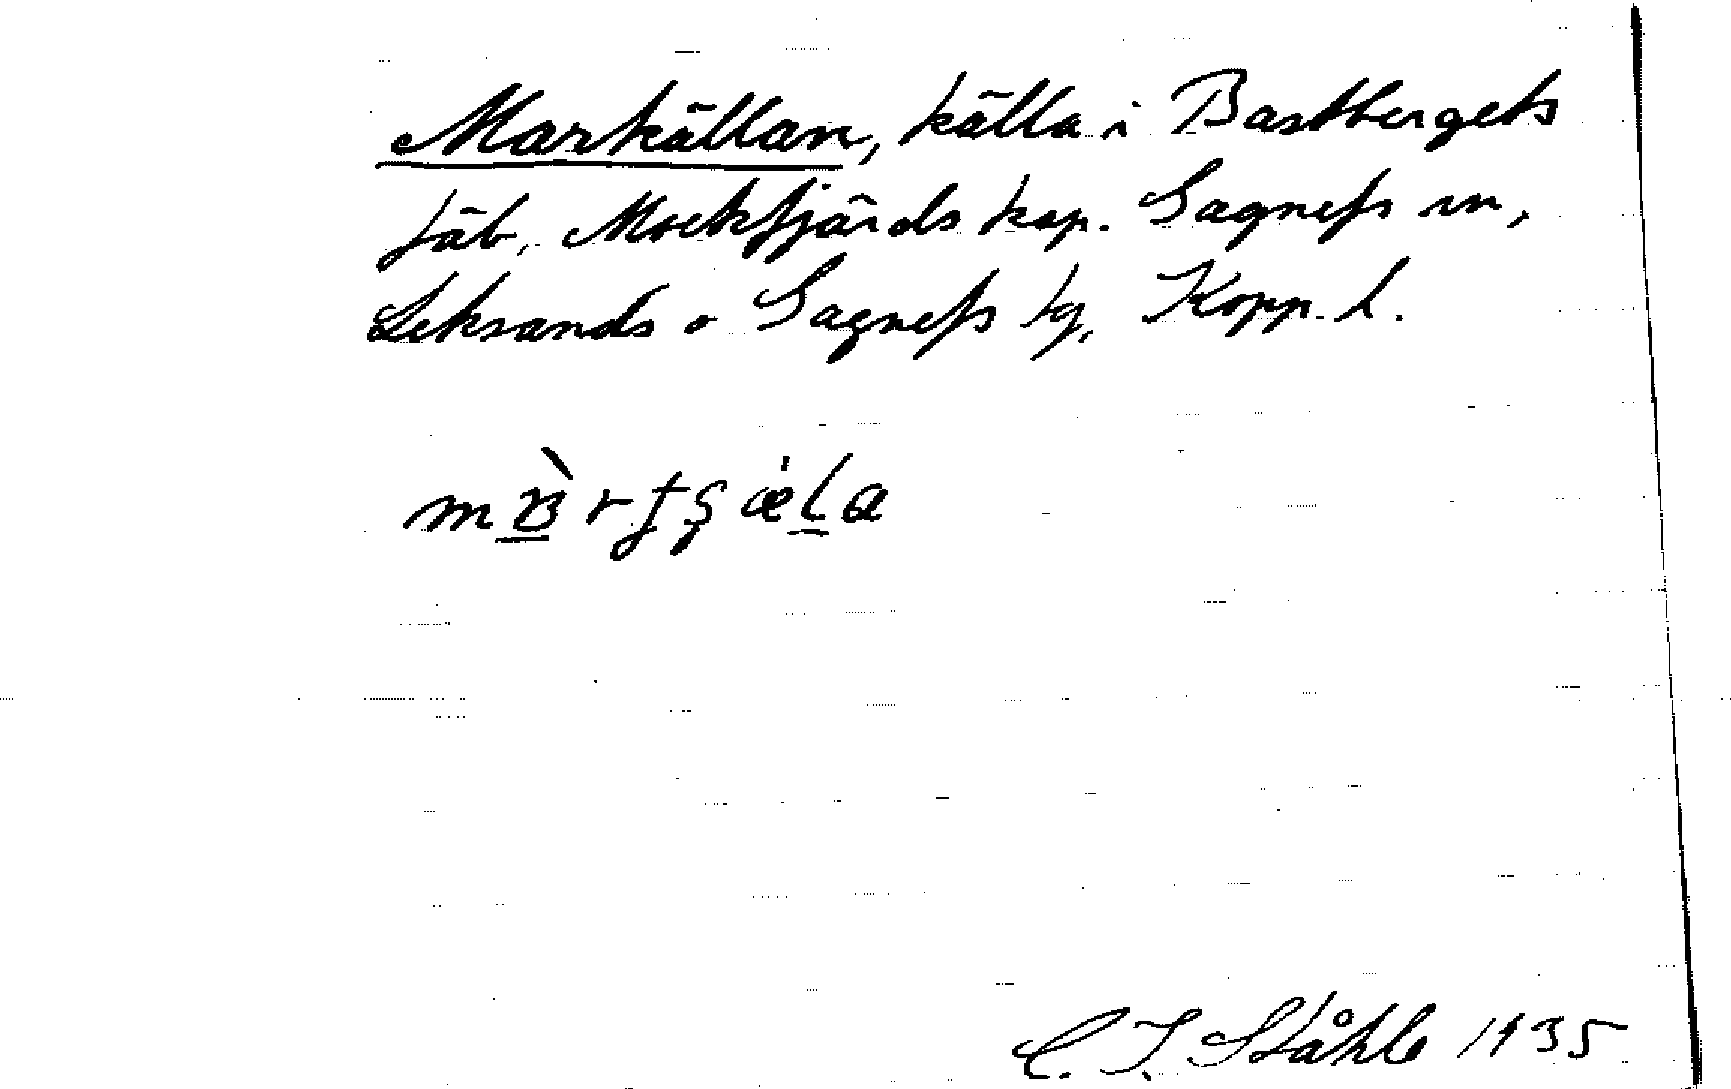 Markällan, källa i Bastbergets
fäb. Mockfjärds kap. Gagnefs sn,
Leksands o Gagnefs tg, Kopp. l.
C. I. Ståhle 1935